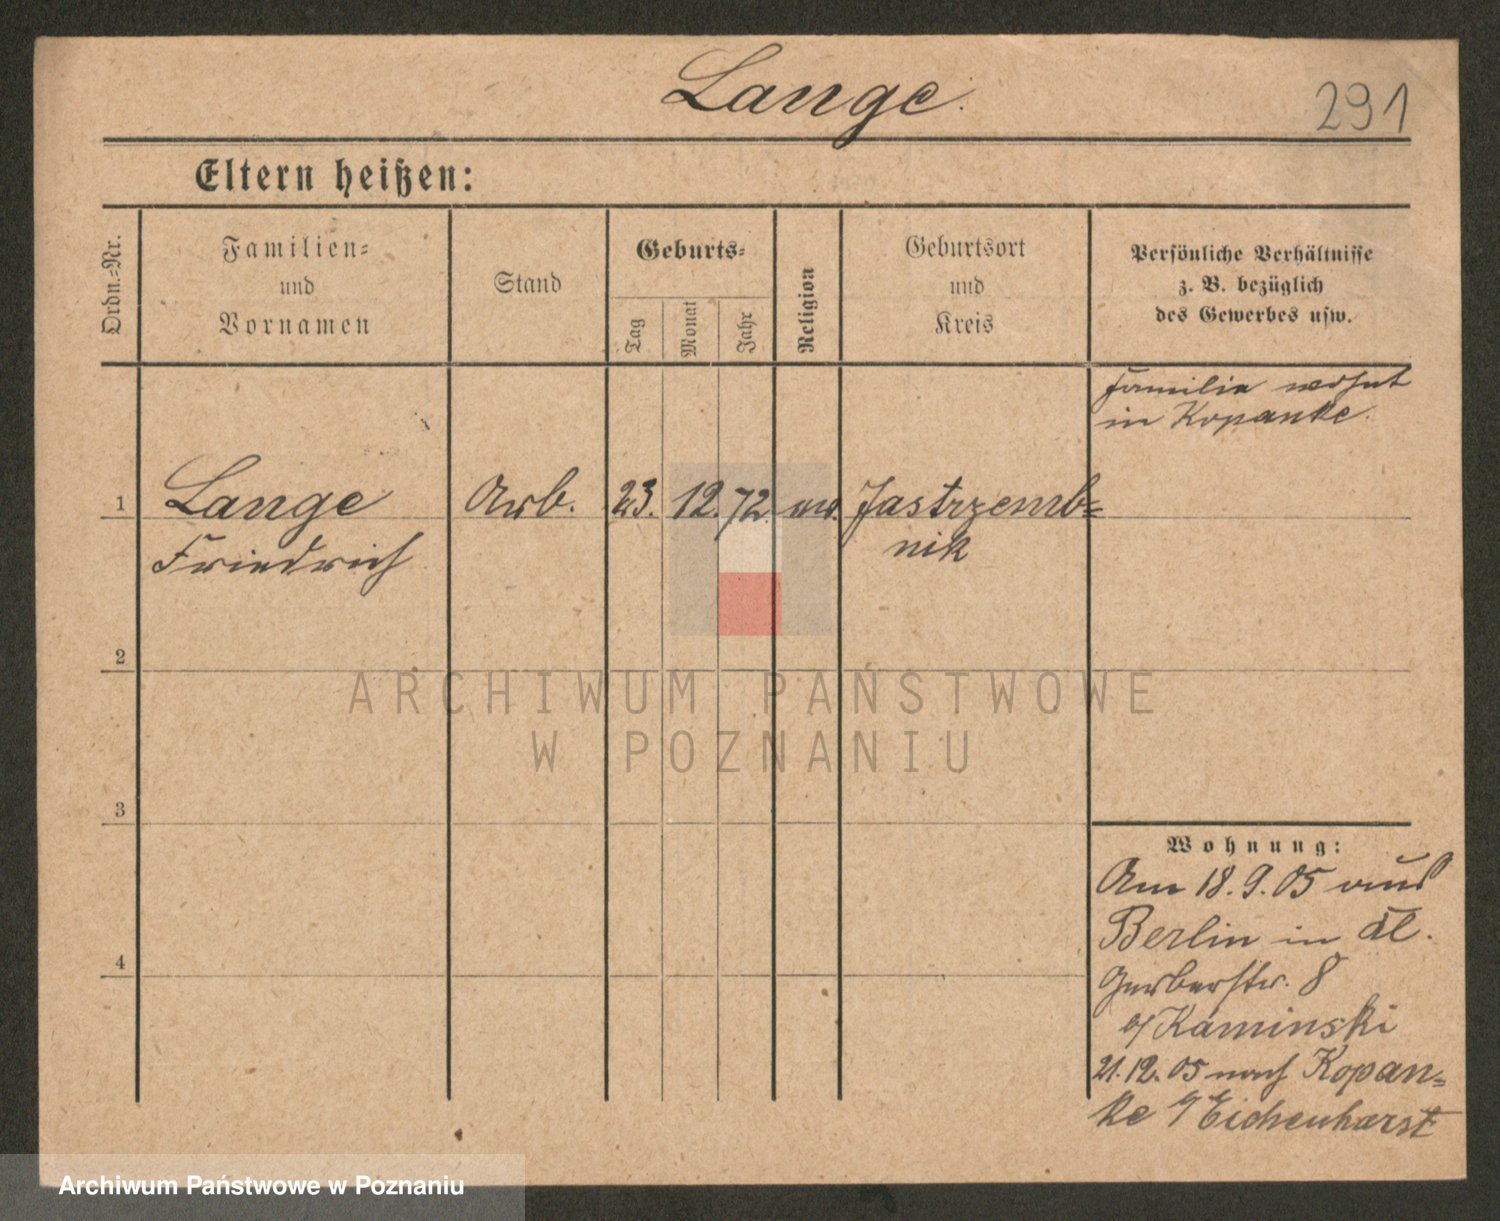 Lange.
291
Eltern heißen:
Ordn.-Nr.
Familien-
und
Vornamen
Stand
Geburts-
Tag
Monat
Jahr
Religion
Geburtsort
und
Kreis
Persönliche Verhältnisse
z. B. bezüglich
des Gewerbes usw.
Familie wohnt
in Kopanke.
1 Lange Arb. 23. 12. 72. ev. Jastrzemb-
Friedrich nik
2
3
4
Wohnung:
Am 18.9.05 aus
Berlin in
Gerberstr. 8
b/ Kaminski
21.12.05 nach Kopan-
ke b/ Eichenhorst
ARCHIWUM PAŃSTWOWE
W POZNANIU
Archiwum Państwowe w Poznaniu